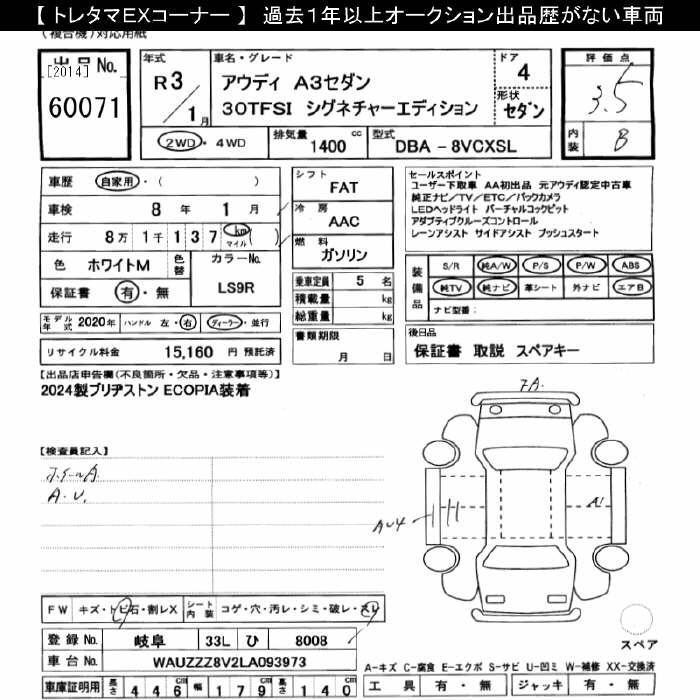 【 トレタマEXコーナー 】 過去1年以上オークション出品歴がない車両
(複合機)対応用紙
出品No.
[2014]
60071
年式
R3/1月
車名・グレード
アウディ A3セダン
30TFSI シグネチャーエディション
ドア
4
形状
セダン
評価点
3.5
内装
B
2WD・4WD
排気量 1400 cc
型式 DBA - 8VCXSL
車歴 自家用・( )
車検 8年 1月
走行 8万 1千 1 3 7 km マイル ( )
色 ホワイトM
色替
カラーNo.
LS9R
保証書 有・無
シフト
FAT
冷房
AAC
燃料
ガソリン
乗車定員 5 名
積載量 kg
総重量 kg
書類期限
月 日
モデル年式 2020年 ハンドル 左・右 ディーラー・並行
リサイクル料金 15,160 円 預託済
セールスポイント
ユーザー下取車 AA初出品 元アウディ認定中古車
純正ナビ/TV/ETC/バックカメラ
LEDヘッドライト バーチャルコックピット
アダプティブクルーズコントロール
レーンアシスト サイドアシスト プッシュスタート
装備品
S/R 純A/W P/S P/W ABS
純TV 純ナビ 革シート 外ナビ エアB
ナビ型番:
後日品
保証書 取説 スペアキー
【出品店申告欄(不良箇所・欠品・注意事項等)】
2024製ブリヂストン ECOPIA装着
【検査員記入】
A.U.
7A.
AU4
A1
FW キズ・トビ石・割レX
シート内装 コゲ・穴・汚レ・シミ・破レ・スレ
登録No. 岐阜 33L ひ 8008
車台No. WAUZZZ8V2LA093973
車庫証明用 長さ 446 幅 179 高さ 140
スペア
A-キズ C-腐食 E-エクボ S-サビ U-凹ミ W-補修 XX-交換済
工具 有・無 ジャッキ 有・無